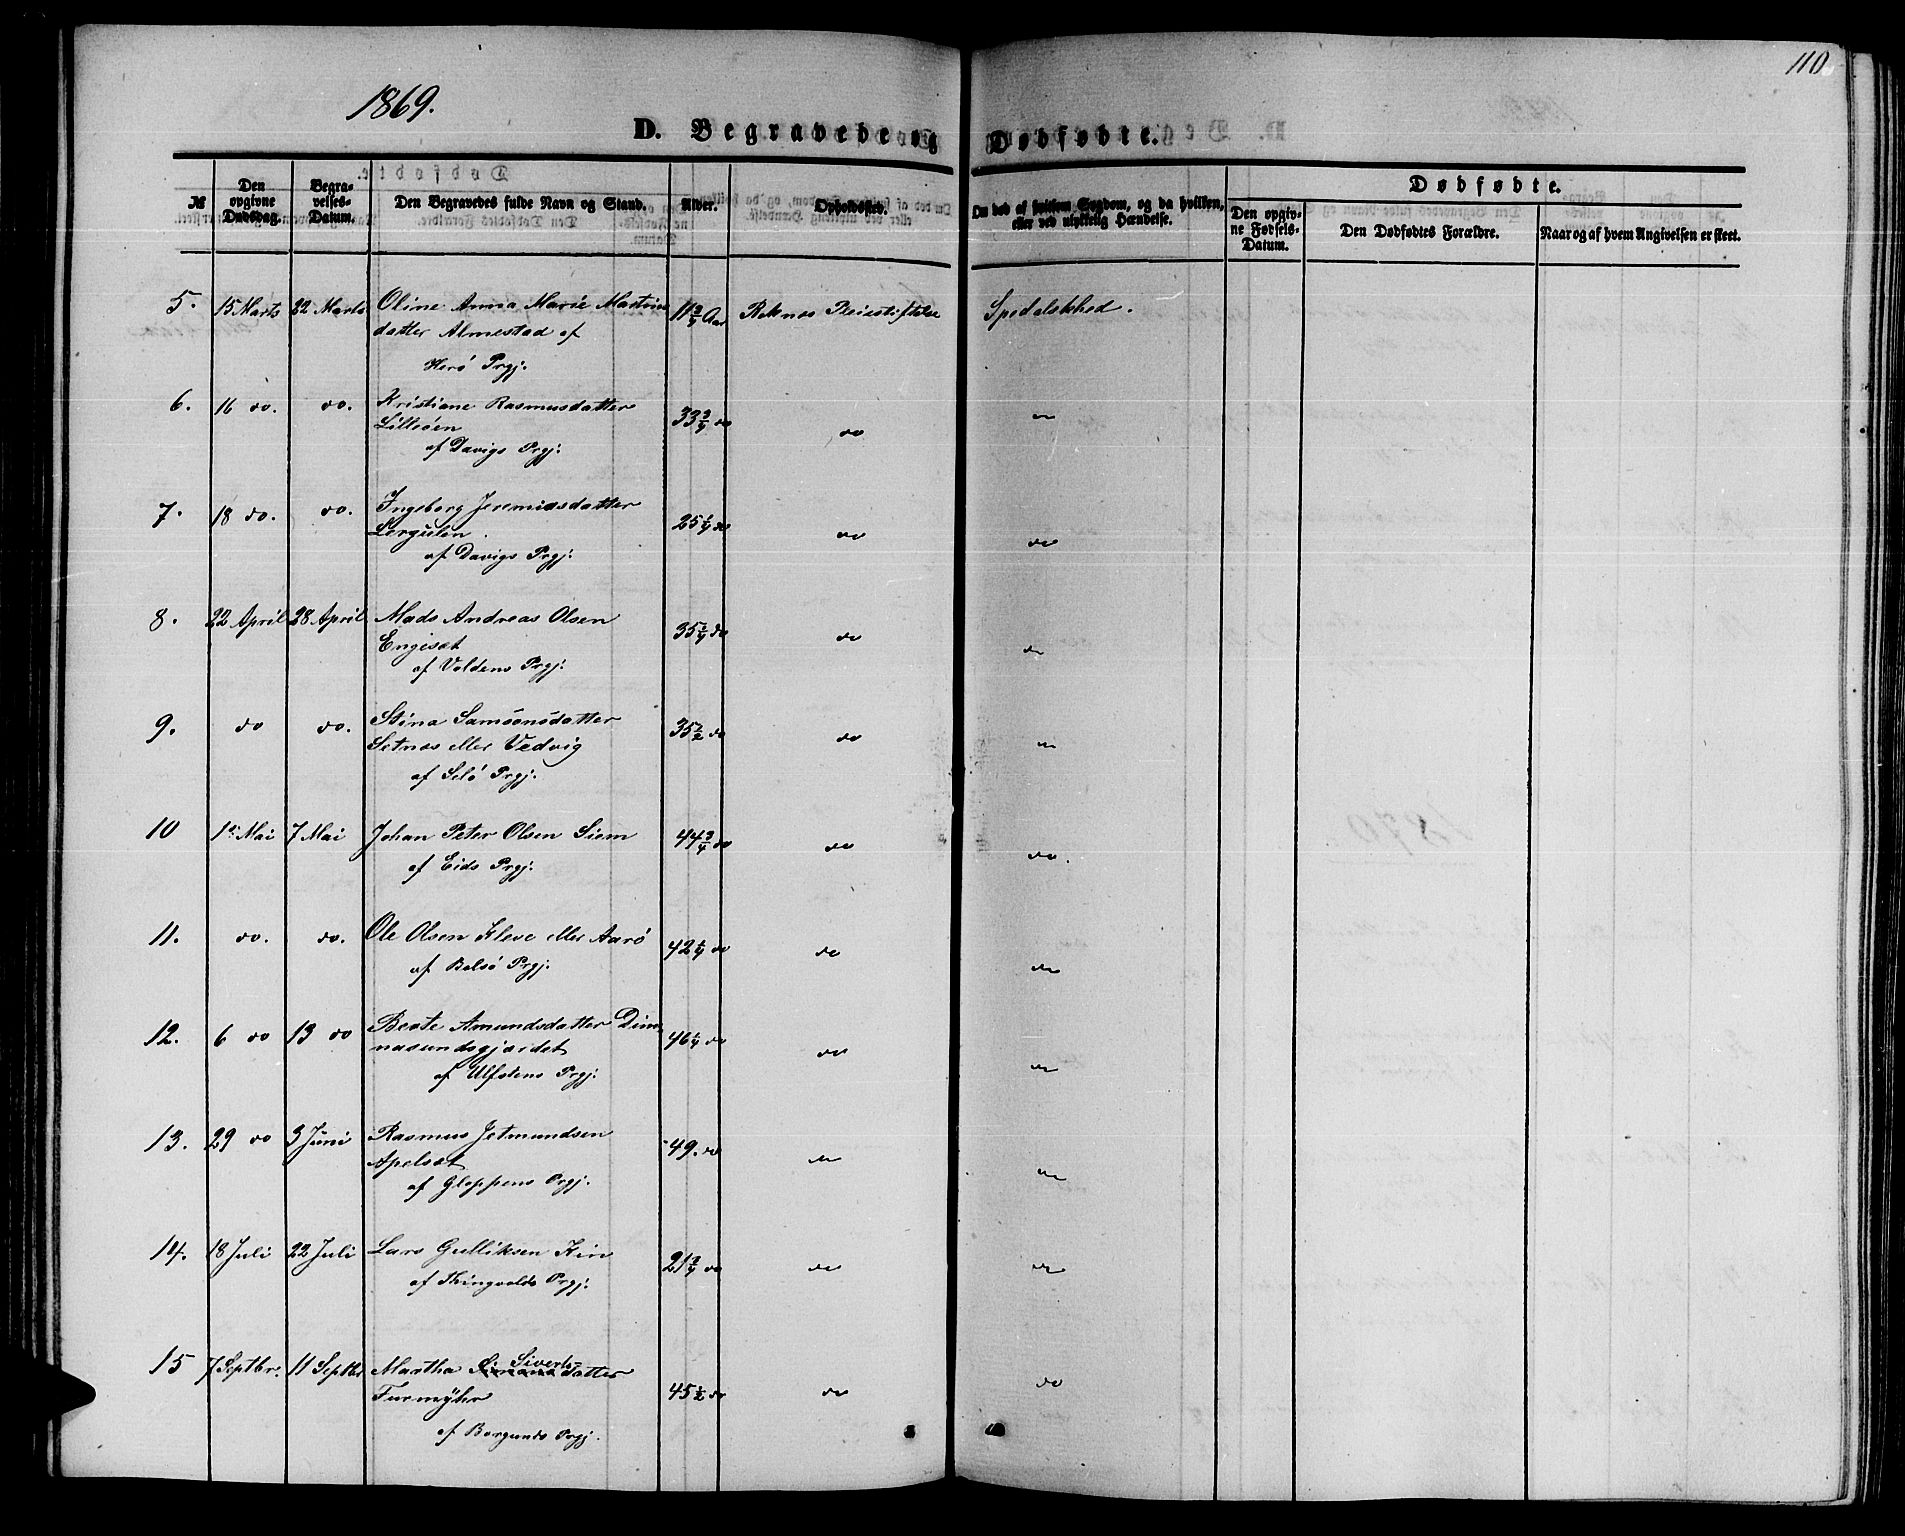 110
1869.
D. Begravede og Dødfødte.
№
Den opgivne Dødsdag.
Begravelses-Datum.
Den Begravedes fulde Navn og Stand.
Alder.
Opholdssted.
Om død af hvilken Sygdom, og da hvilken, eller ved ulykkelig Hændelse.
Dødfødte.
Den opgivne Fødsels-Datum.
Den Dødfødtes Forældre.
Naar og af hvem Angivelsen er skeet.
5. 15 Marts 22 Marts Oline Anna Marie Martin 11 3/4 Aar Reknæs Pleiestiftelse Spedalskhed.
datter Almestad af
Herø Prgj.
6. 16 do. do. Kristiane Rasmusdatter 33 3/4 do do do
Lilleøen
af Davigs Prgj:
7. 18 do. do. Ingeborg Jeremiasdatter 25 1/4 do do do
Lergulen.
af Davigs Prgj:
8. 22 April 28 April Mads Andreas Olsen 35 3/4 do do do
Engeset
af Voldens Prgj:
9. do do. Stina Samsonsdatter 35 1/2 do do do
Setnæs eller Vedvig
af Selø Prgj.
10 1ste Mai 7 Mai Johan Peter Olsen Siem 44 3/4 do do do.
af Eids Prgj.
11. do. do. Ole Olsen Kleve eller Aarø 42 1/4 do do do
af Bolsø Prgj.
12. 6 do 13 do Beate Amundsdatter Dim 46 1/4 do do do
nasundsgjærdet
af Ulfstens Prgj.
13. 29 do 3 Juni Rasmus Jetmundsen 49. do do do
Apelset
af Gloppens Prgj.
14. 18 Juli 22 Juli Lars Gulliksen Hin 21 3/4 do do do
af Thingvolds Prgj.
15 7 Septbr. 11 Septbr Martha Siverts-datter 45 1/2 do do do
Furmyhr
af Borgunds Prgj.